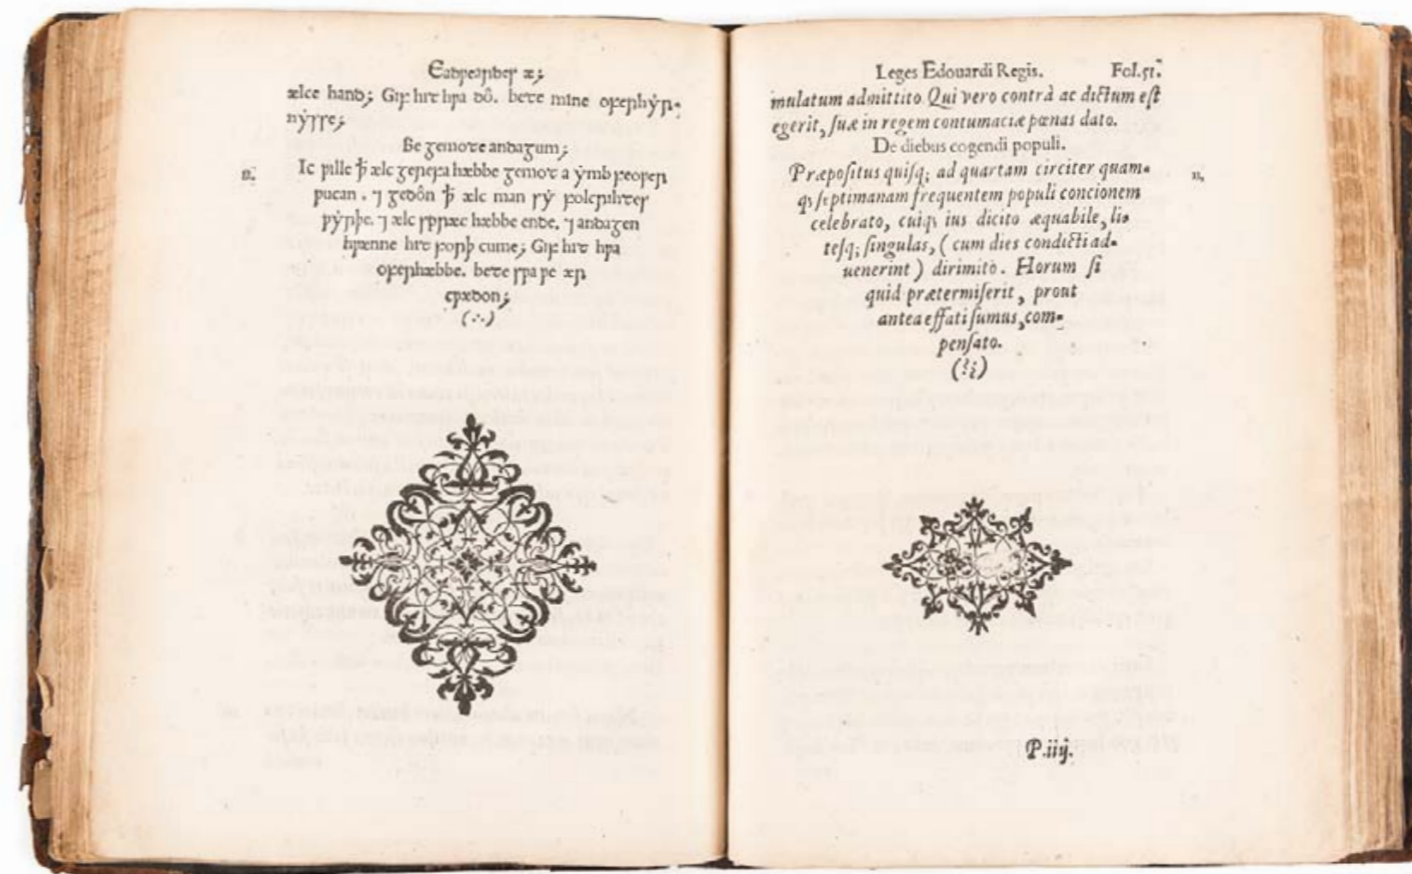 Eadƿeardes æ;
ælce hand; Gif hit hƿa dô. bete mine oferhẏr-
nẏsse;
Be gemote andagum;
11. Ic ƿille ꝥ ælc gerefa hæbbe gemot a ẏmb feoƿer
ƿucan. ⁊ gedôn ꝥ ælc man sẏ folcrihtes
ƿẏrþe. ⁊ ælc spræc hæbbe ende. ⁊ andagen
hƿænne hit forþ cume; Gif hit hƿa
oferhæbbe. bete sƿa ƿe ær
cƿædon;
(∴)
Leges Edouardi Regis. Fol.51.
mulatum admittito. Qui vero contrà ac dictum eſt
egerit, ſuæ in regem contumaciæ pœnas dato.
De diebus cogendi populi.
Præpoſitus quiſq; ad quartam circiter quam- 11.
q; ſeptimanam frequentem populi concionem
celebrato, cuiq; ius dicito æquabile, li-
teſq; ſingulas, (cum dies condicti ad-
uenerint) dirimito. Horum ſi
quid prætermiſerit, prout
antea effati ſumus, com-
penſato.
P.iiij.